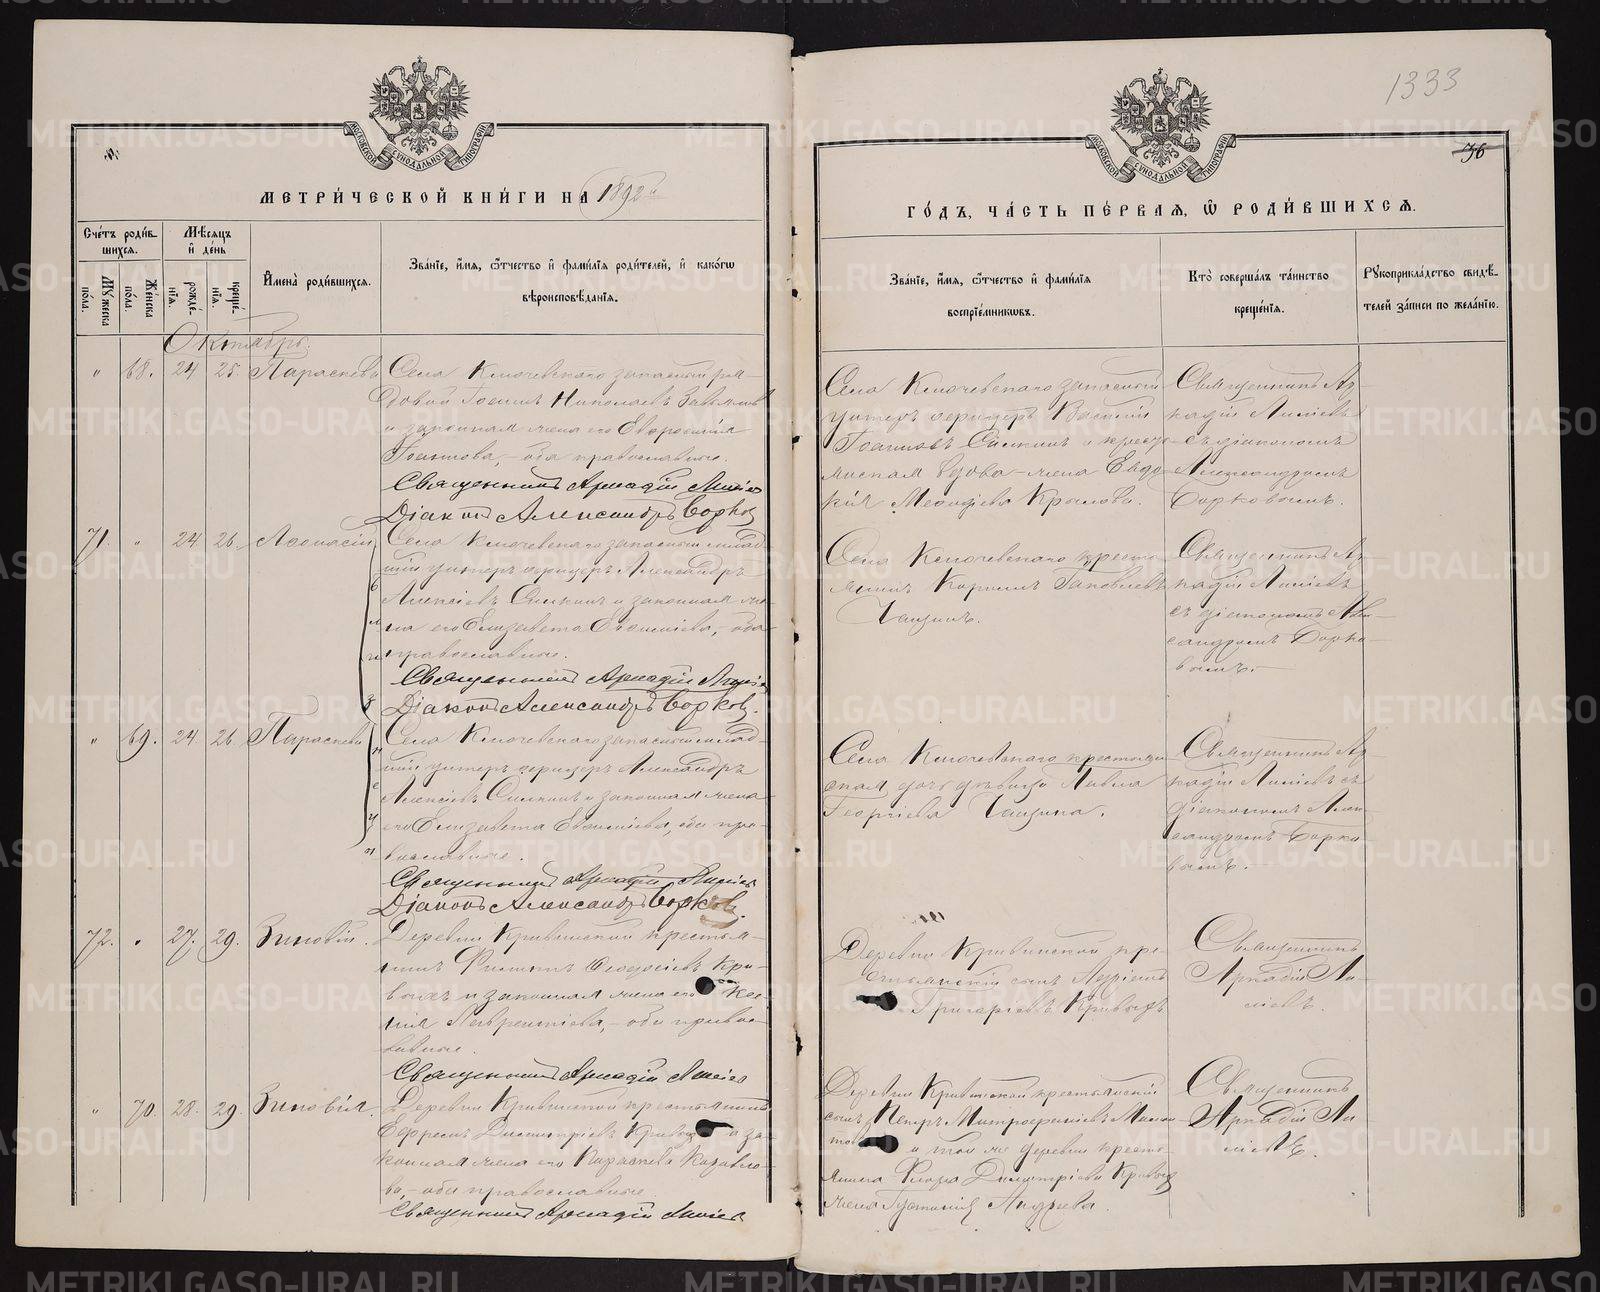 МЕТРИ́ЧЕСКОЙ КНИ́ГИ НА 1892 й
Сче́тъ роди́в-
шихся.
Мꙋ́жеска
по́ла.
Же́нска
по́ла.
Мѣ́сяцъ
и҆ де́нь
рожде́-
нїѧ.
креще́-
нїѧ.
И҆мена̀ роди́вшихсѧ.
Зва́нїе, и҆́мѧ, ѻ҆́тчество и҆ фами́лїѧ роди́телей, и҆ како́гѡ
вѣроисповѣ́данїѧ.
Октябрь.
" 68. 24 25. Параскева
Села Ключевскаго запасный ря-
довой Іоаннъ Николаевъ
и законная жена его Евфросинія
Іоаннова, - оба православные.
Священникъ Аркадій
Діаконъ Александръ Борковъ
71. " 24 26. Аѳанасій
Села Ключевскаго запасный млад-
шій унтеръ офицеръ Александръ
Алексіевъ Силкинъ и законная же-
на его Елизавета Евѳиміева, - оба
православные.
Священникъ Аркадій
Діаконъ Александръ Борковъ.
близнецы
" 69. 24. 26. Параскева
Села Ключевскаго запасный млад-
шій унтеръ офицеръ Александръ
Алексіевъ Силкинъ и законная жена
его Елизавета Евѳиміева, оба пра-
вославные.
Священникъ Аркадій
Діаконъ Александръ Борковъ.
72. " 27. 29. Зиновій.
Деревни Кривинской крестья-
нинъ Филиппъ Ѳеодосіевъ Кри-
выхъ и законная жена его
Лаврентіева, - оба правос-
лавные.
Священникъ Аркадій
" 70. 28. 29. Зиновія.
Деревни Кривинской крестьянинъ
Ефремъ Димитріевъ Кривыхъ и за-
конная жена его Параскева
ва, - оба православные
Священникъ Аркадій
1333
76
ГО́ДЪ, ЧА́СТЬ ПЕ́РВАѦ, Ѽ РОДИ́ВШИХСѦ.
Зва́нїе, и҆́мѧ, ѻ҆́тчество и҆ фами́лїѧ
воспрїе́мникѡвъ.
Кто̀ соверша́лъ та́инство
креще́нїѧ.
Рꙋкоприкла́дство свидѣ́-
телей за́писи по жела́нїю.
Села Ключевскаго запасный
унтеръ офицеръ Василій
Іоанновъ Силкинъ и кресть-
янская вдова - жена Евдо-
кія Меѳодіева Крылова.
Священникъ Ар-
кадій
съ діакономъ
Александромъ
Борковымъ.
Села Ключевскаго кресть-
янинъ Корнилъ Іаковлевъ
Чащинъ.
Священникъ Ар-
кадій
съ діакономъ Але-
ксандромъ Борко-
вымъ. -
Села Ключевскаго крестьян-
ская дочь дѣвица Павла
Георгіева Чащина.
Священникъ Ар-
кадій съ
діакономъ Алек-
сандромъ Борко-
вымъ. -
Деревни Кривинской кре-
стьянскій сынъ
Григоріевъ Кривыхъ
Священникъ
Аркадій
Деревни Кривинской крестьянскій
сынъ Петръ Митрофановъ
и той же деревни кресть-
янина Флора Димитріева Кривыхъ
жена Іустинія Андреева.
Священникъ
Аркадій